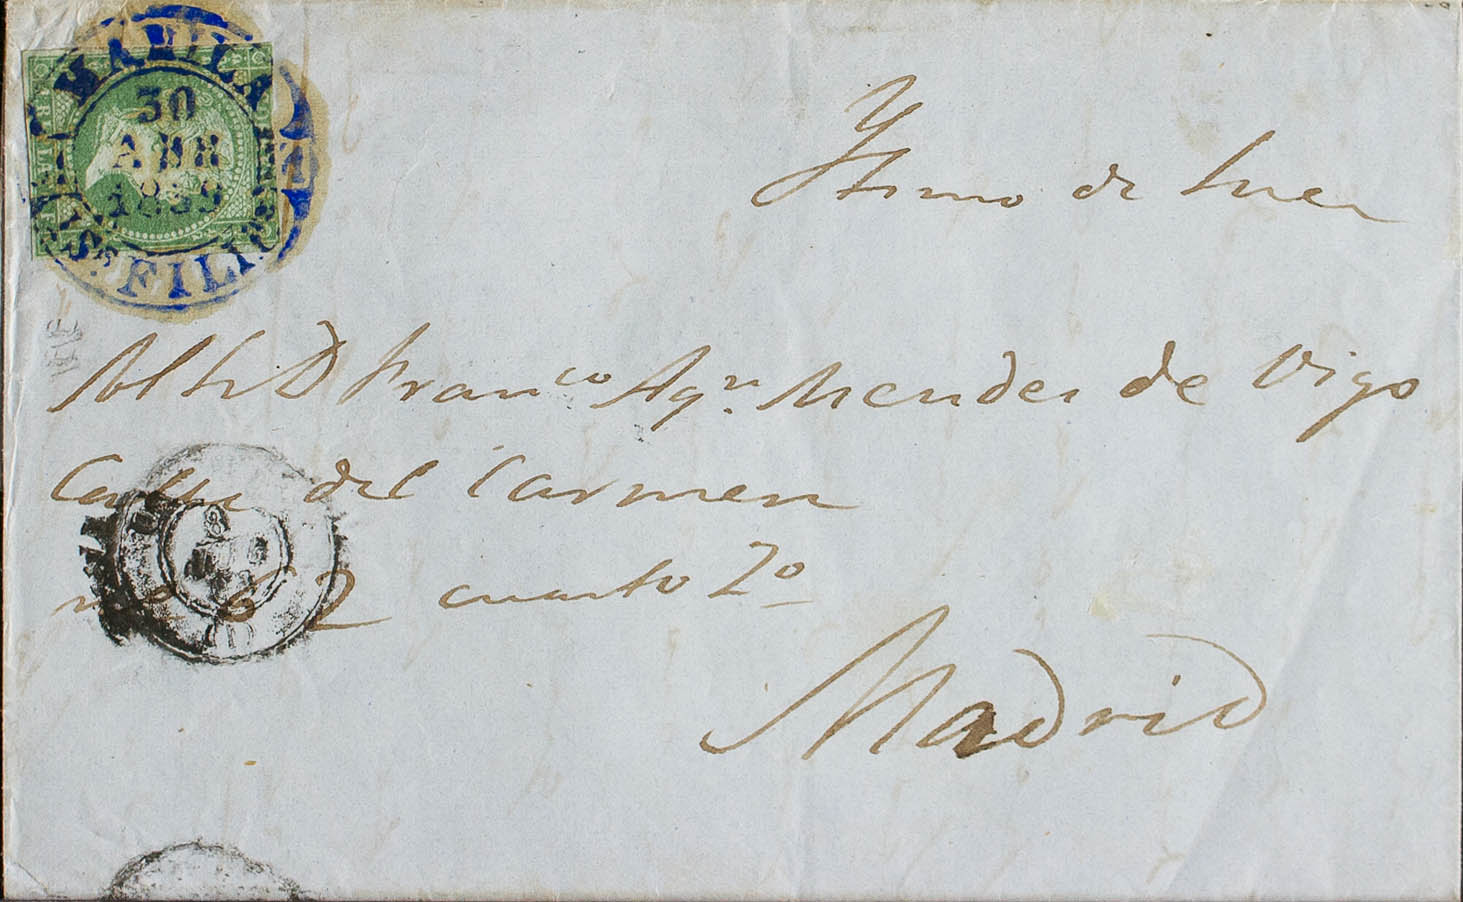 MANILA
30
ABR
1859
YS. FILIP.
Ystmo de Suez
Al Sr D Franco Agn Mendez de Vigo
Calle del Carmen
no 62 cuarto 2o
Madrid